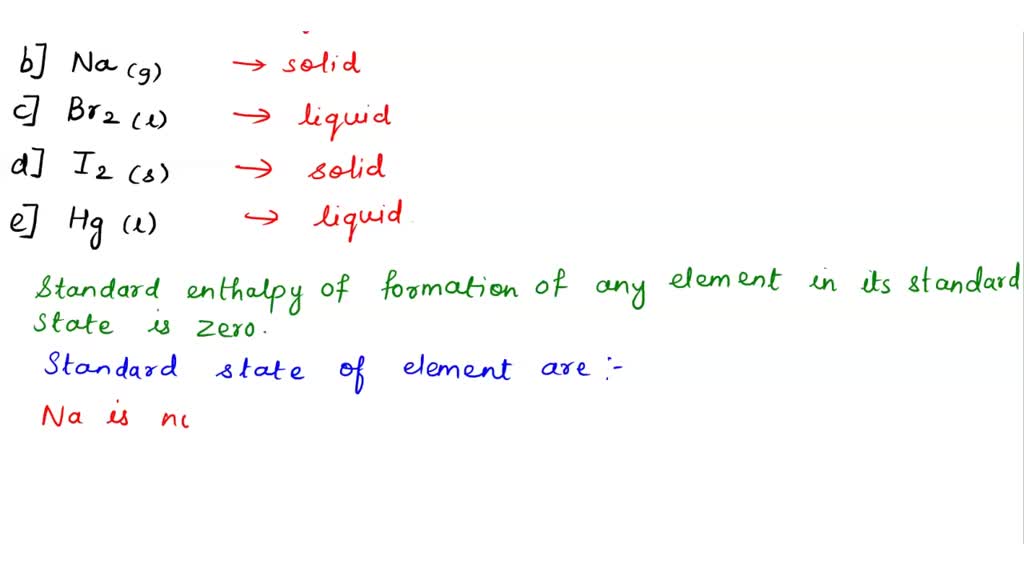 b] Na (g) → solid
c] Br2 (l) → liquid
d] I2 (s) → solid
e] Hg (l) → liquid
Standard enthalpy of formation of any element in its standard
state is zero.
Standard state of element are :-
Na is no